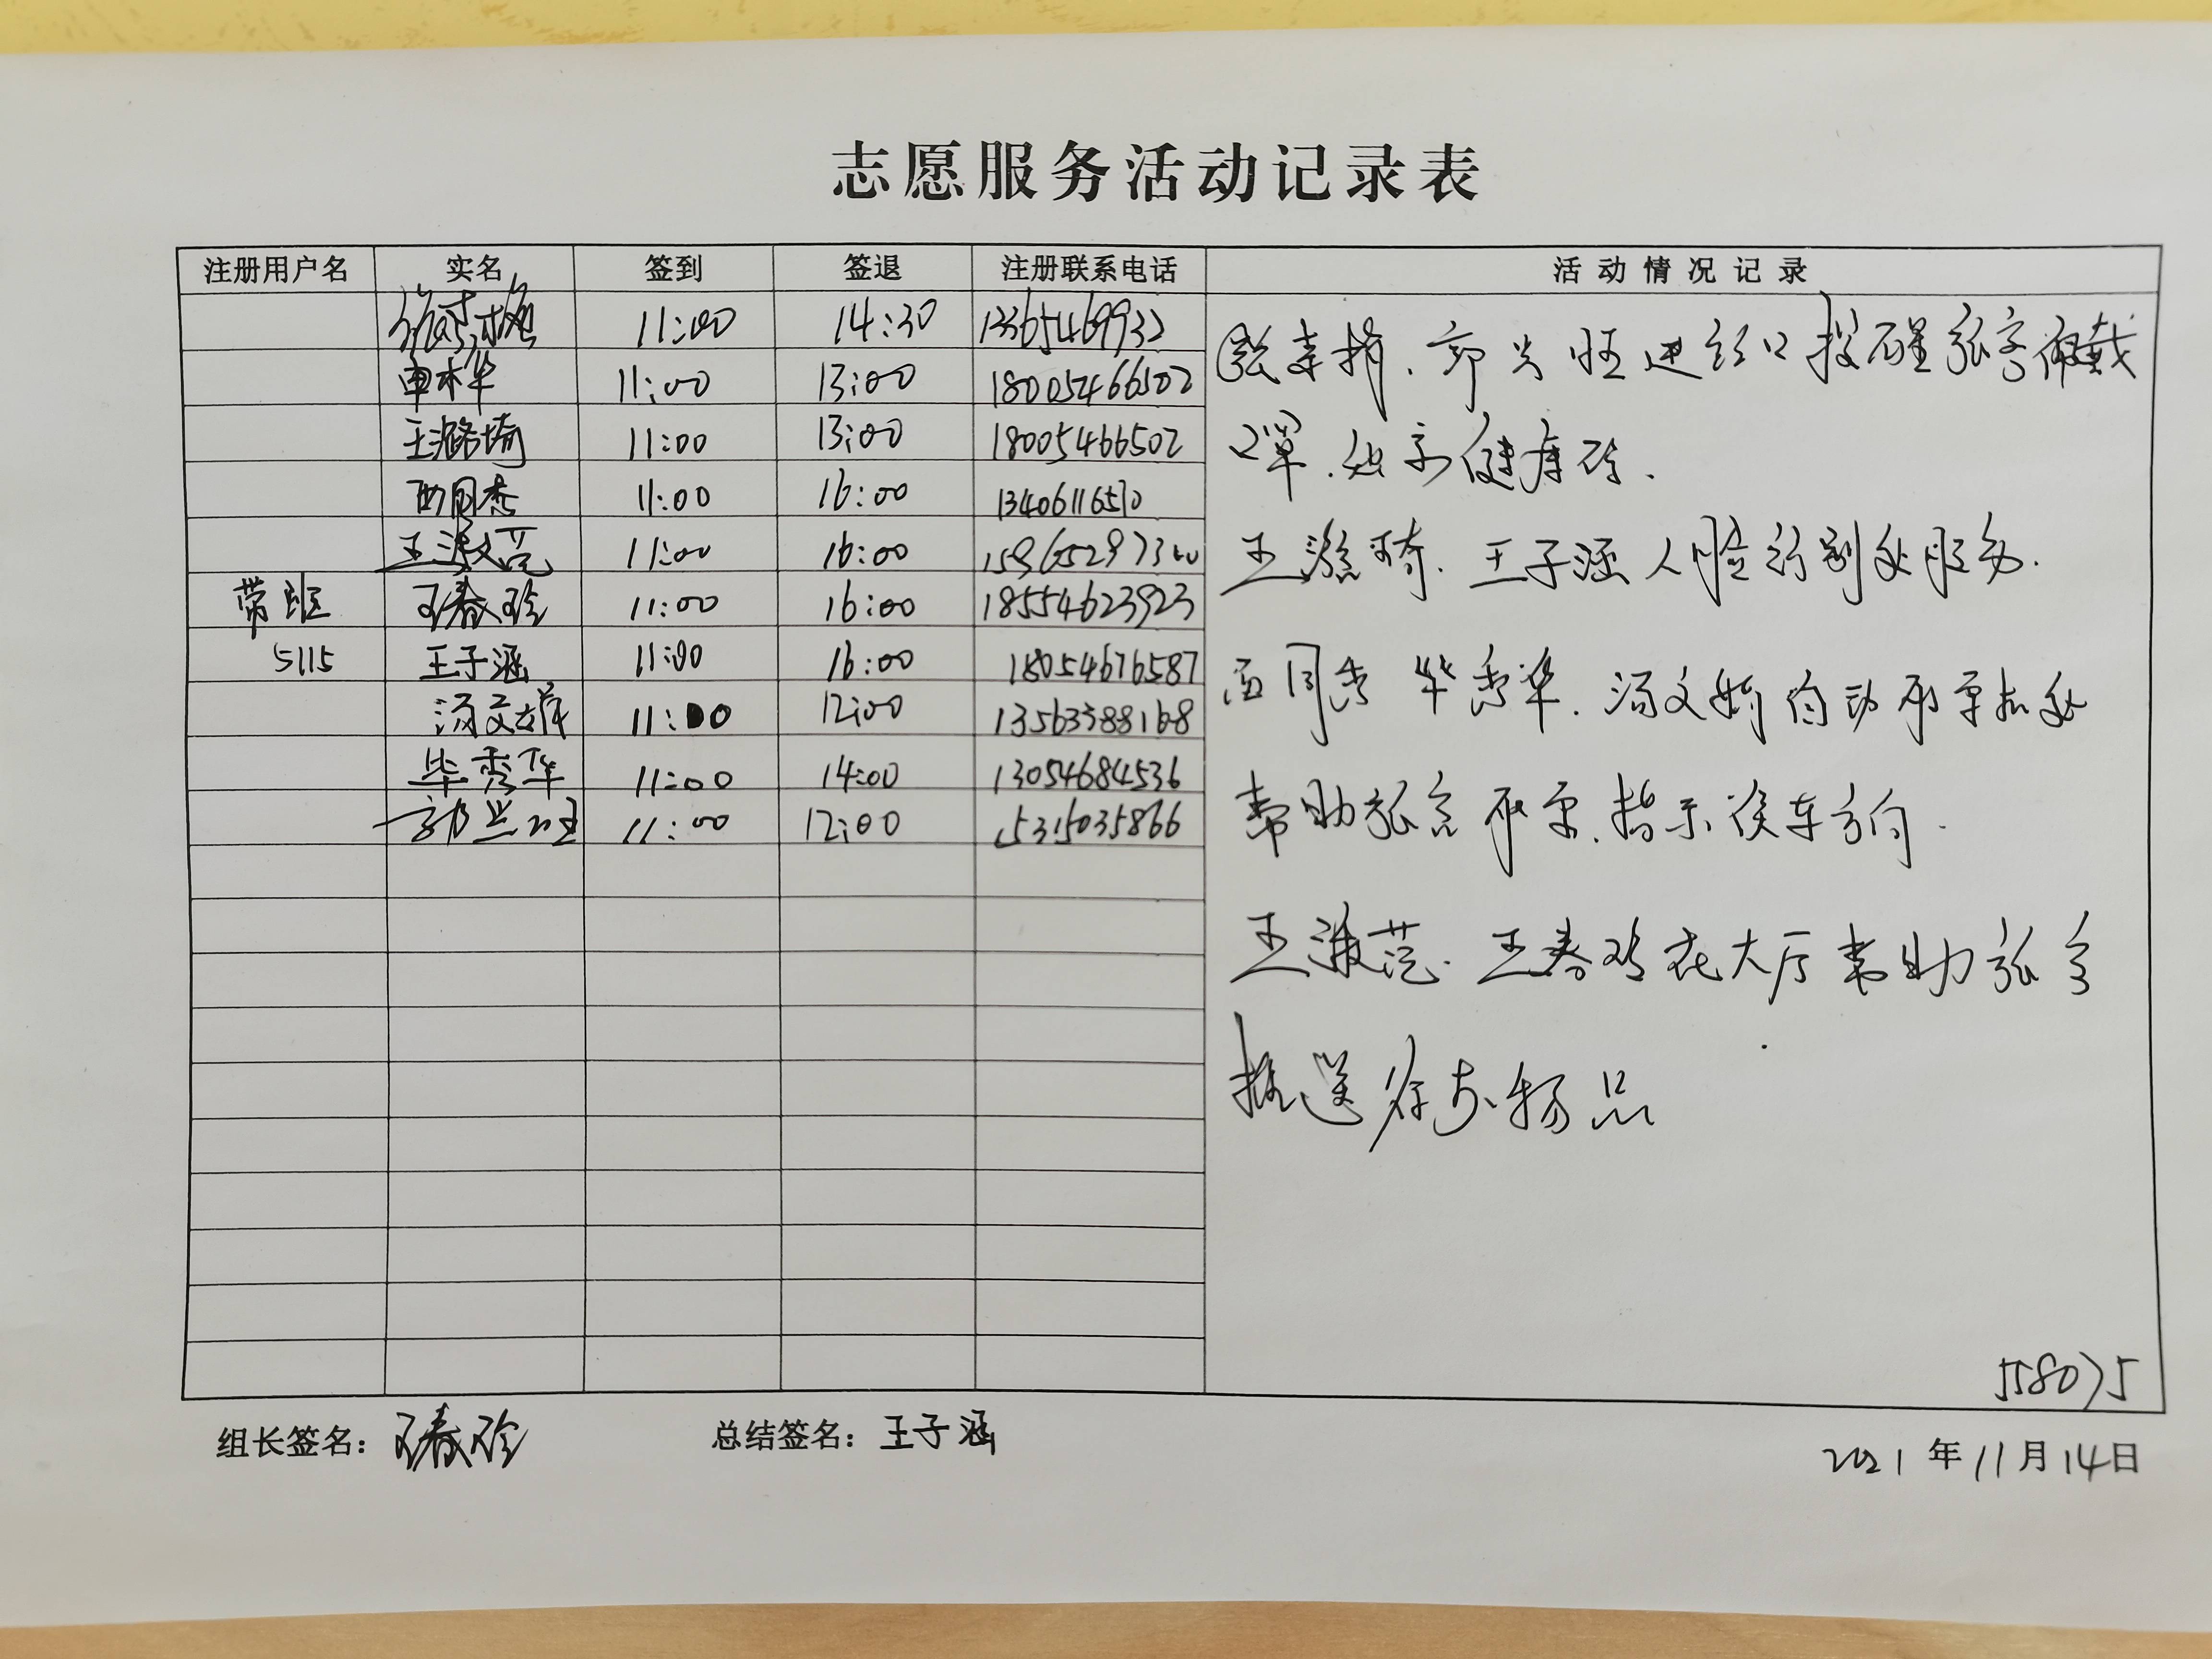 志愿服务活动记录表
注册用户名 实名 签到 签退 注册联系电话 活动情况记录
11:00 14:30 13365469932
申木华 11:00 13:00 18005466502
王潞埼 11:00 13:00 18005466502
西同杰 11:00 16:00 13406116570
王淑范 11:00 16:00
带班 王春玲 11:00 16:00 18554623923
5115 王子涵 11:00 16:00 18054676587
汤文婷 11:00 12:00 13563388168
毕秀华 11:00 14:00 13054684536
郭兰旺 11:00 12:00 15315035866
郭兰旺进站口提醒旅客佩戴
口罩.出示健康码.
王潞琦.王子涵人脸识别处服务.
西同杰 毕秀华.汤文婷自动取票机处
帮助旅客取票.指示候车方向.
王淑范.王春玲在大厅帮助旅客
推送行李物品
558075
组长签名:王春玲 总结签名:王子涵
2021年11月14日